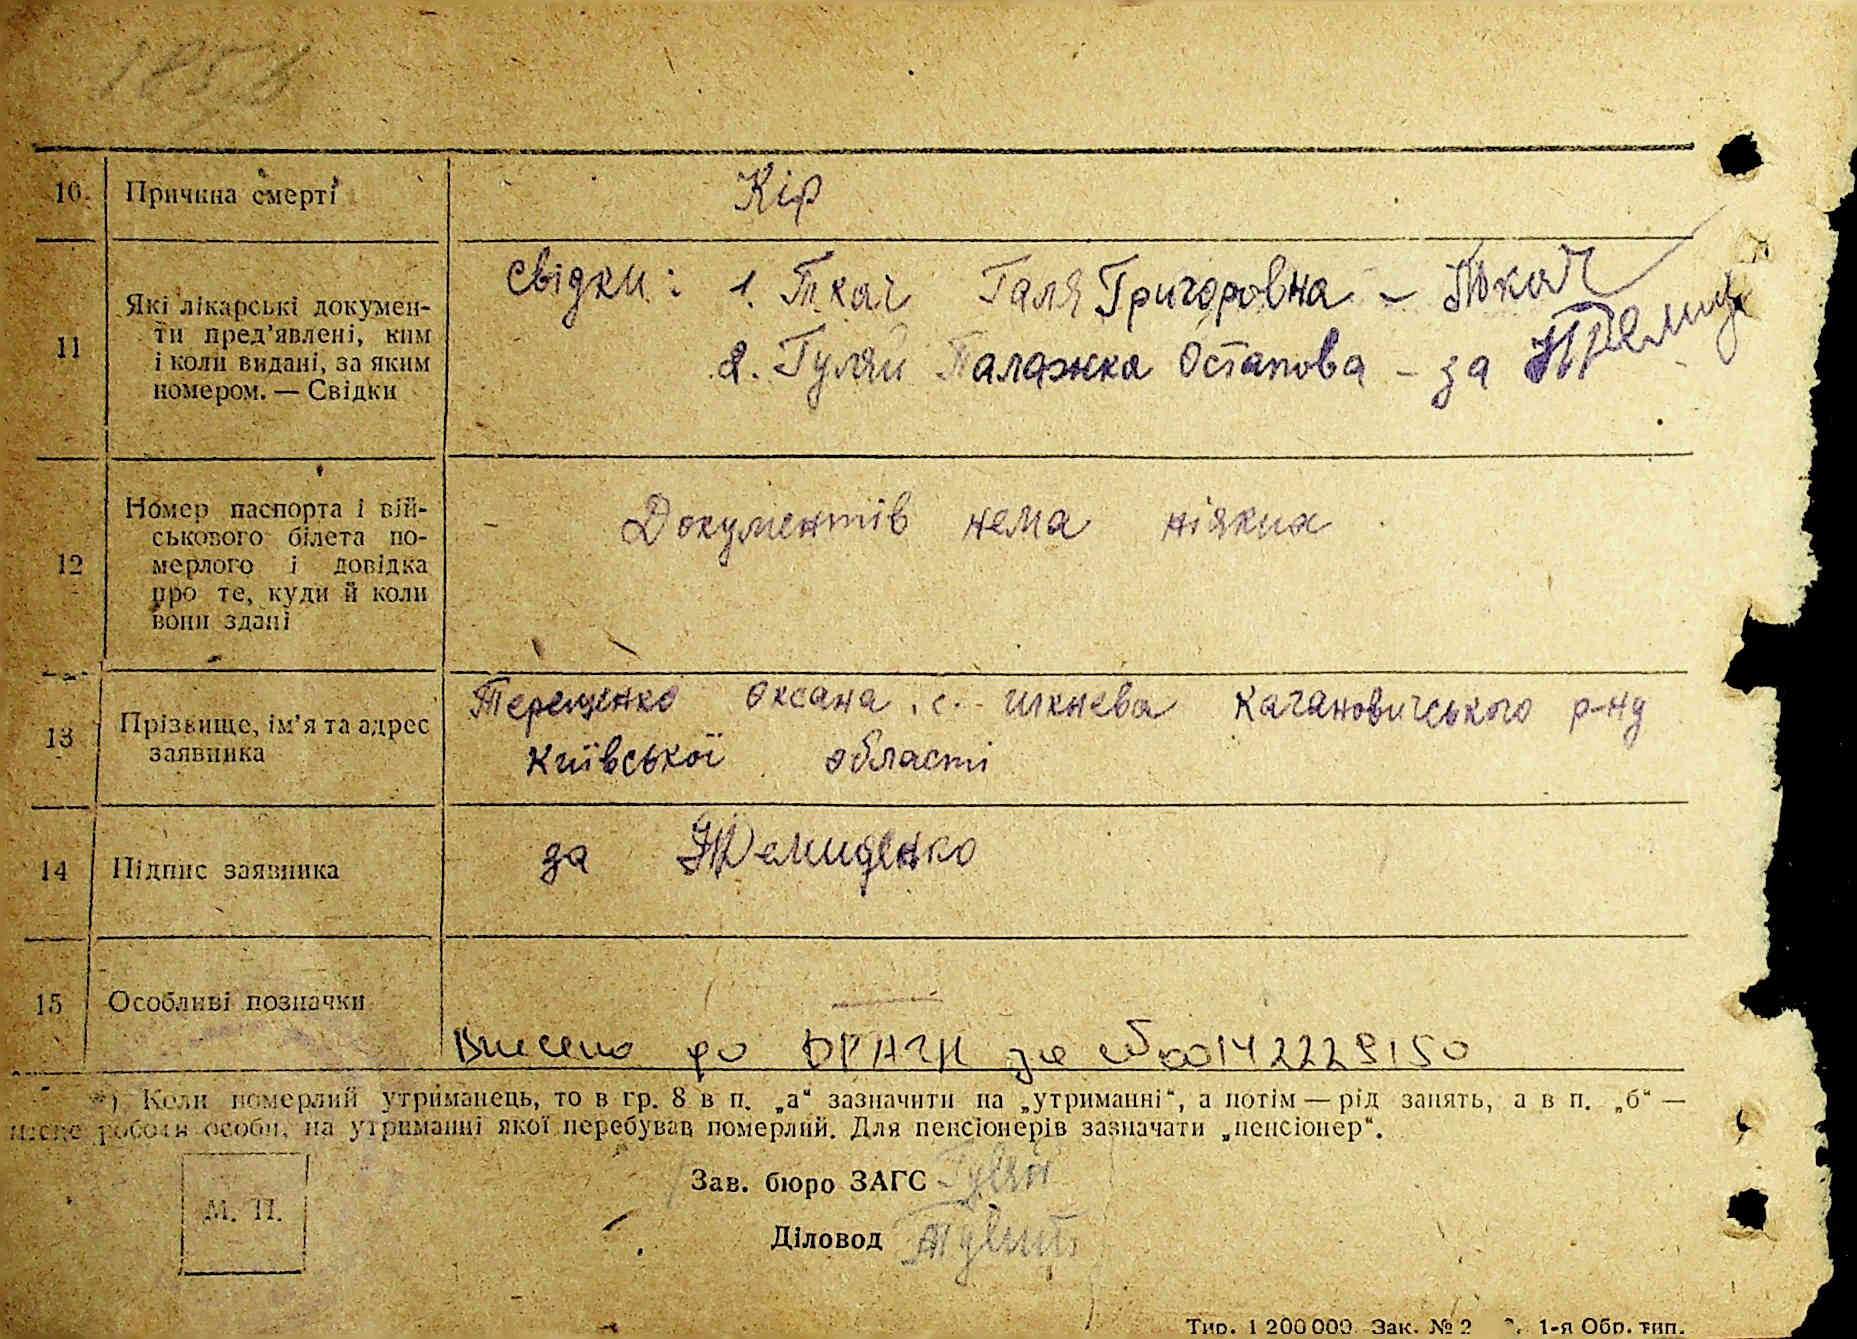 10. Причина смерті Кір
11 Які лікарські докумен-
ти пред'явлені, ким
і коли видані, за яким
номером. — Свідки
Свідки: 1. Ткач Галя Григоровна - Ткач
2. Гуляй Палажка Остапова - за
12 Номер паспорта і вій-
ськового білета по-
мерлого і довідка
про те, куди й коли
вони здані
Документів нема ніяких
13 Прізвище, ім'я та адрес
заявника
Терещенко Оксана с. Шкнева Кагановичського р-ну
Київської області
14 Підпис заявника за Демиденко
15 Особливі позначки
Внесено до ДРАЦС за №00142229150
*) Коли померлий утриманець, то в гр. 8 в п. „а“ зазначити на „утриманні“, а потім — рід занять, а в п. „б“ —
місце роботи особи, на утриманні якої перебував померлий. Для пенсіонерів зазначати „пенсіонер“.
М. П.
Зав. бюро ЗАГС Гуляй
Діловод
Тир. 1 200 000. Зак. № 2 1-я Обр. тип.